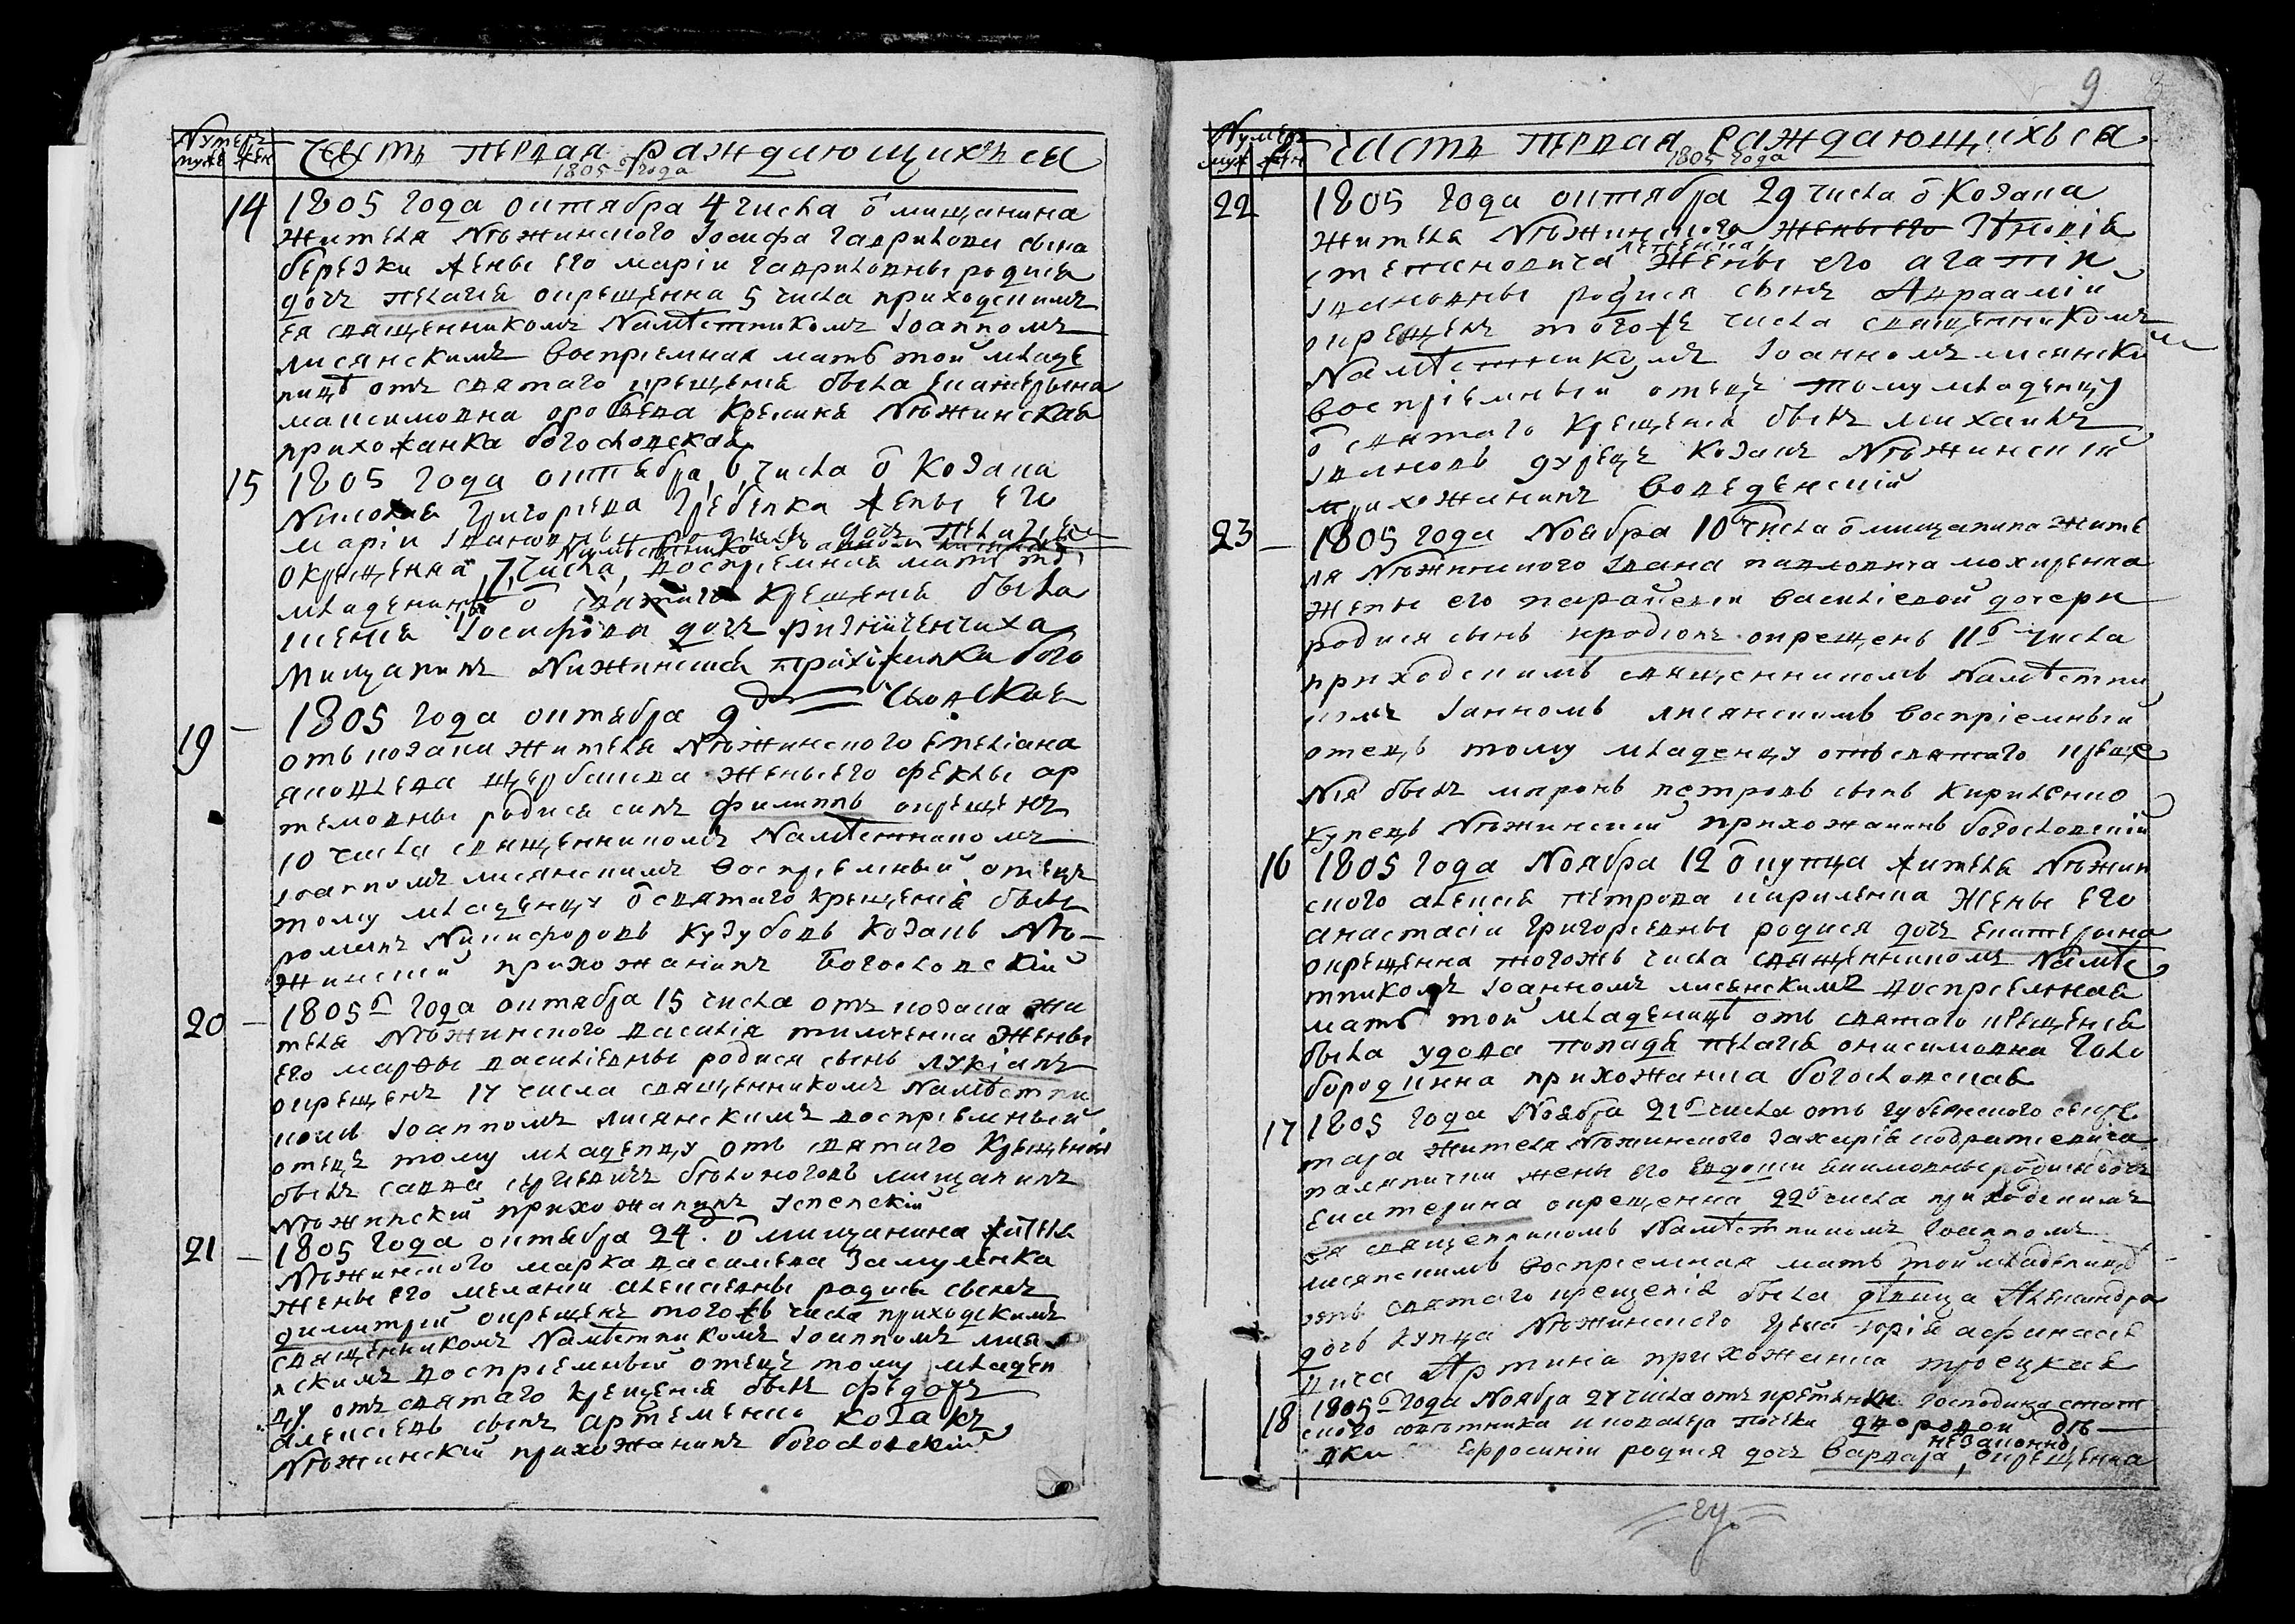 Нумеръ
муже жен
Часть первая раждающихъся
1805 года
14 1805 года октября 4 числа ѿ мищанина
жителя Нѣжинского Іосифа Гаврилови сына
березки жены его маріи гавриловны родися
дочъ пелагіа окрещенна 5 числа приходскимъ
ея священникомъ Намѣстникомъ Іоанномъ
лисянскимъ воспріемная мать той младе
ницѣ отъ святаго крещеніа была екатерына
максимовна кремина Нѣжинскаа
прихожанка богословскаа
15 1805 года октября 6 числа ѿ козака
Николаа григоріева гребенка жены его
маріи івановны родися дочъ пелагіа
Намѣстнико Іоанном
окрещенна 7 числа, воспріемнаа мать то
младеницы ѿ святаго крещеніа была
Іосифова дочъ
Нѣжинскаа прихожанка бого
словскаа
19 1805 года октября 9
отъ козака жителя Нѣжинского емеліана
яковлева щербакова жены его феклы ар
темовны родися синъ филиппъ окрещенъ
10 числа священникомъ Намѣстникомъ
іоанномъ лисянскимъ воспріемный отецъ
тому младенцу ѿ святаго крещеніа былъ
романъ Никифоровъ кузубовъ козакъ Нѣ
жинский прихожанинъ Богословскій
20 1805 года октября 15 числа отъ козака жи
теля Нѣжинского василія тимченка жены
его марфы василіевны родися сынъ лукіанъ
окрещенъ 17 числа священникомъ Намѣстни
комъ Іоанномъ лисянскимъ воспріемный
отецъ тому младенцу отъ святаго крещеніа
былъ савва сергіевичъ мищанинъ
Нѣжинскій прихожанинъ Успенскій
21 1805 года октября 24. ѿ мищанина жителя
Нѣжинского марка василіева Замуленка
жены его меланіи алексіевны родися сынъ
димитрій окрещенъ тогожъ числа приходскимъ
священникомъ Намѣстникомъ Іоанномъ лися
нскимъ воспріемный отецъ тому младен
цу отъ святаго крещеніа былъ федоръ
алексіевъ сынъ артеменко козакъ
Нѣжинскій прихожанинъ богословскій
9
Нумеръ
муж жен
Часть первая раждающихъся
1805 года
22 1805 года октября 29 числа ѿ козака
жителя Нѣжинского жены его
степановича жены его агапіи
івановны родися сынъ Авраамій
окрещенъ тогоже числа священникомъ
Намѣстникомъ Іоанномъ лисянски
воспріемный отецъ тому младенцу
ѿ святаго крещеніа былъ михаилъ
івановъ козакъ Нѣжинскій
прихожанинъ Воведенскій
23 1805 года Ноября 10 числа ѿ мищанина жите
ля Нѣжинского Івана павловича мохиренка
жены его парасвеіи василіевой дочери
родися сынъ иродіонъ окрещенъ 11 числа
приходскимъ священникомъ Намѣстни
комъ Іанномъ лисянскимъ воспріемный
отецъ тому младенцу отъ святаго креще
ніа былъ миронъ петровъ сынъ кириленко
купецъ Нѣжинский прихожанинъ богословскій
16 1805 года Ноября 12 ѿ купца жителя Нѣжин
ского алексіа петрова кириленка жены его
анастасіи григоріевны родися дочъ екатерына
окрещенна тогожъ числа священникомъ Намѣс
тникомъ Іоанномъ лисянскимъ воспріемнаа
мать той младеницѣ отъ святаго крещеніа
была удова попадя пелагіа онисимовна голо
бородкинна прихожанка богословскаа
17 1805 года Ноября 21 числа отъ губернского секре
таря жителя Нѣжинского Захаріа кодратіевича
жены его евдокіи родися дочъ
екатерина окрещенна 22 числа приходскимъ
ея священникомъ Намѣстникомъ Іоанномъ
лисянскимъ воспріемная мать той младеницѣ
отъ святаго крещеніа была дѣвица Александра
дочъ купца Нѣжинского грека юріа афанасіе
вича прихожанка троецкаа
18 1805 года Ноября 27 числа отъ Господина стат
ского совѣтника дворовой дѣ
вки Ефросиніи родися дочъ варвара незаконно, окрещенна